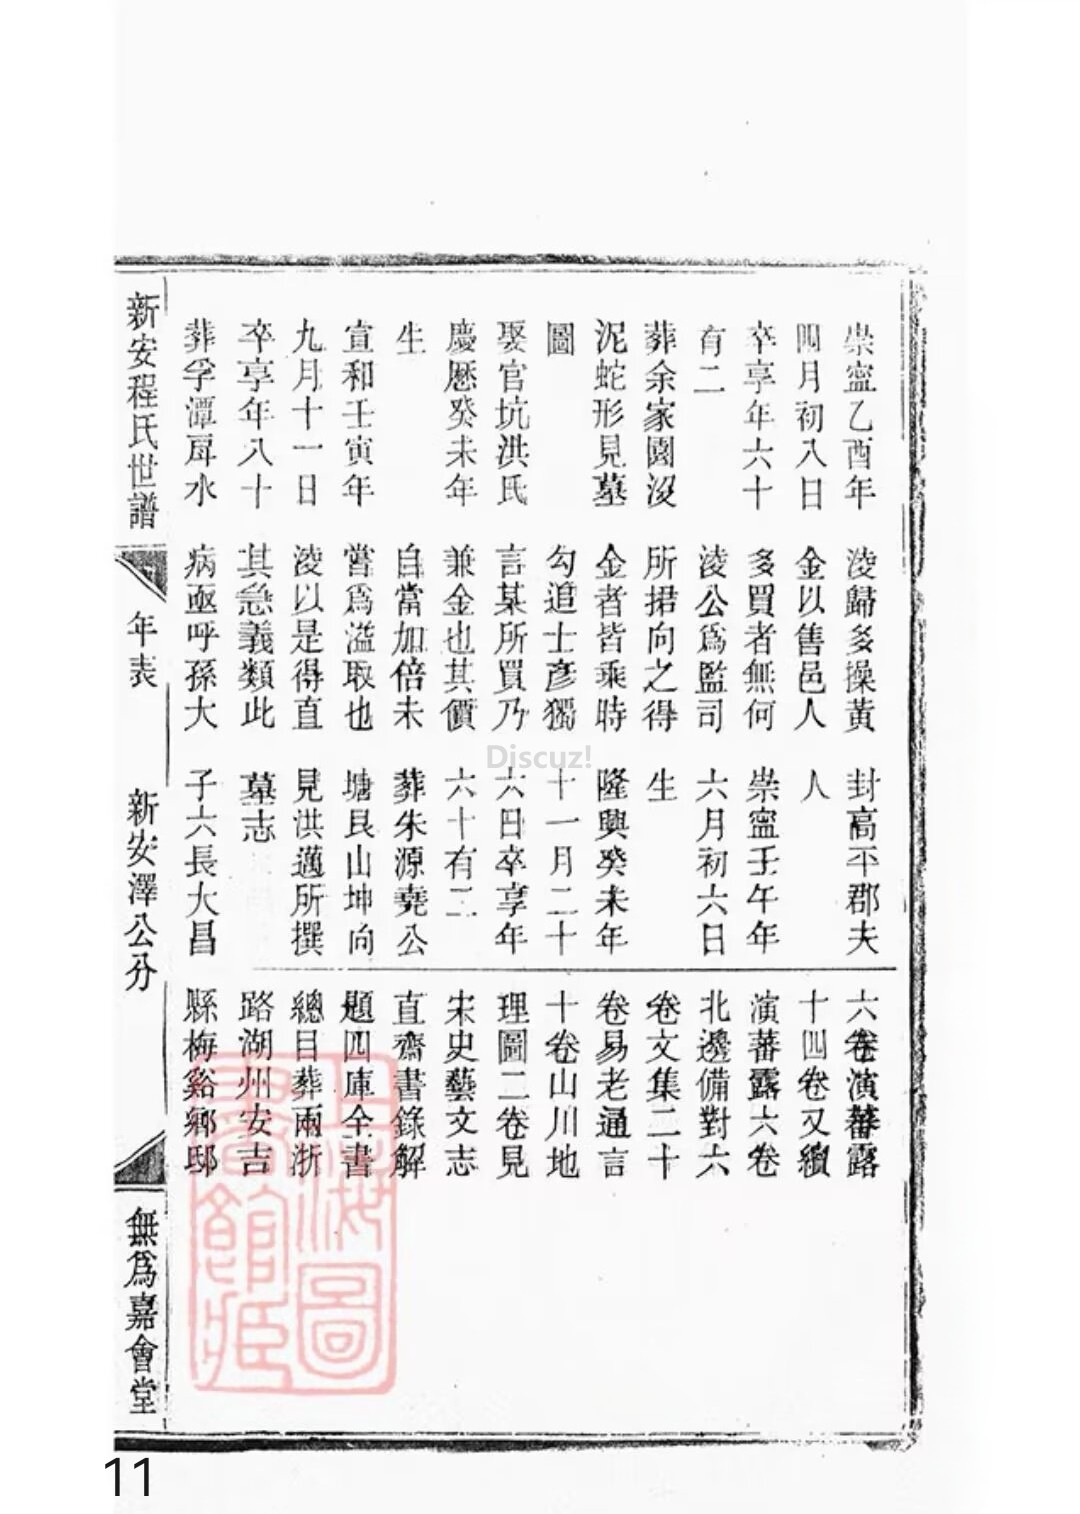 崇寍乙酉年
四月初八日
卒享年六十
有二
葬余家園沒
泥蛇形見墓
圖
娶官坑洪氏
慶厯癸未年
生
宣和壬寅年
九月十一日
卒享年八十
葬孚潭厚水
淩歸多操黃
金以售邑人
多買者無何
淩公爲監司
所捃向之得
金者皆乘時
勾追士彦獨
言某所買乃
兼金也其價
自當加倍未
嘗爲溢取也
淩以是得直
其急義類此
病亟呼孫大
封高平郡夫
人
崇寍壬午年
六月初六日
生
隆興癸未年
十一月二十
六日卒享年
六十有二
葬朱源堯公
塘艮山坤向
見洪邁所撰
墓志
子六長大昌
六卷演蕃露
十四卷又續
演蕃露六卷
北邊備對六
卷文集二十
卷易老通言
十卷山川地
理圖二卷見
宋史藝文志
直齋書錄解
題四庫全書
總目葬兩浙
路湖州安吉
縣梅谿鄉邸
新安程氏世譜
年表
新安澤公分
無爲嘉會堂
上海圖
書館藏
Discuz!
11